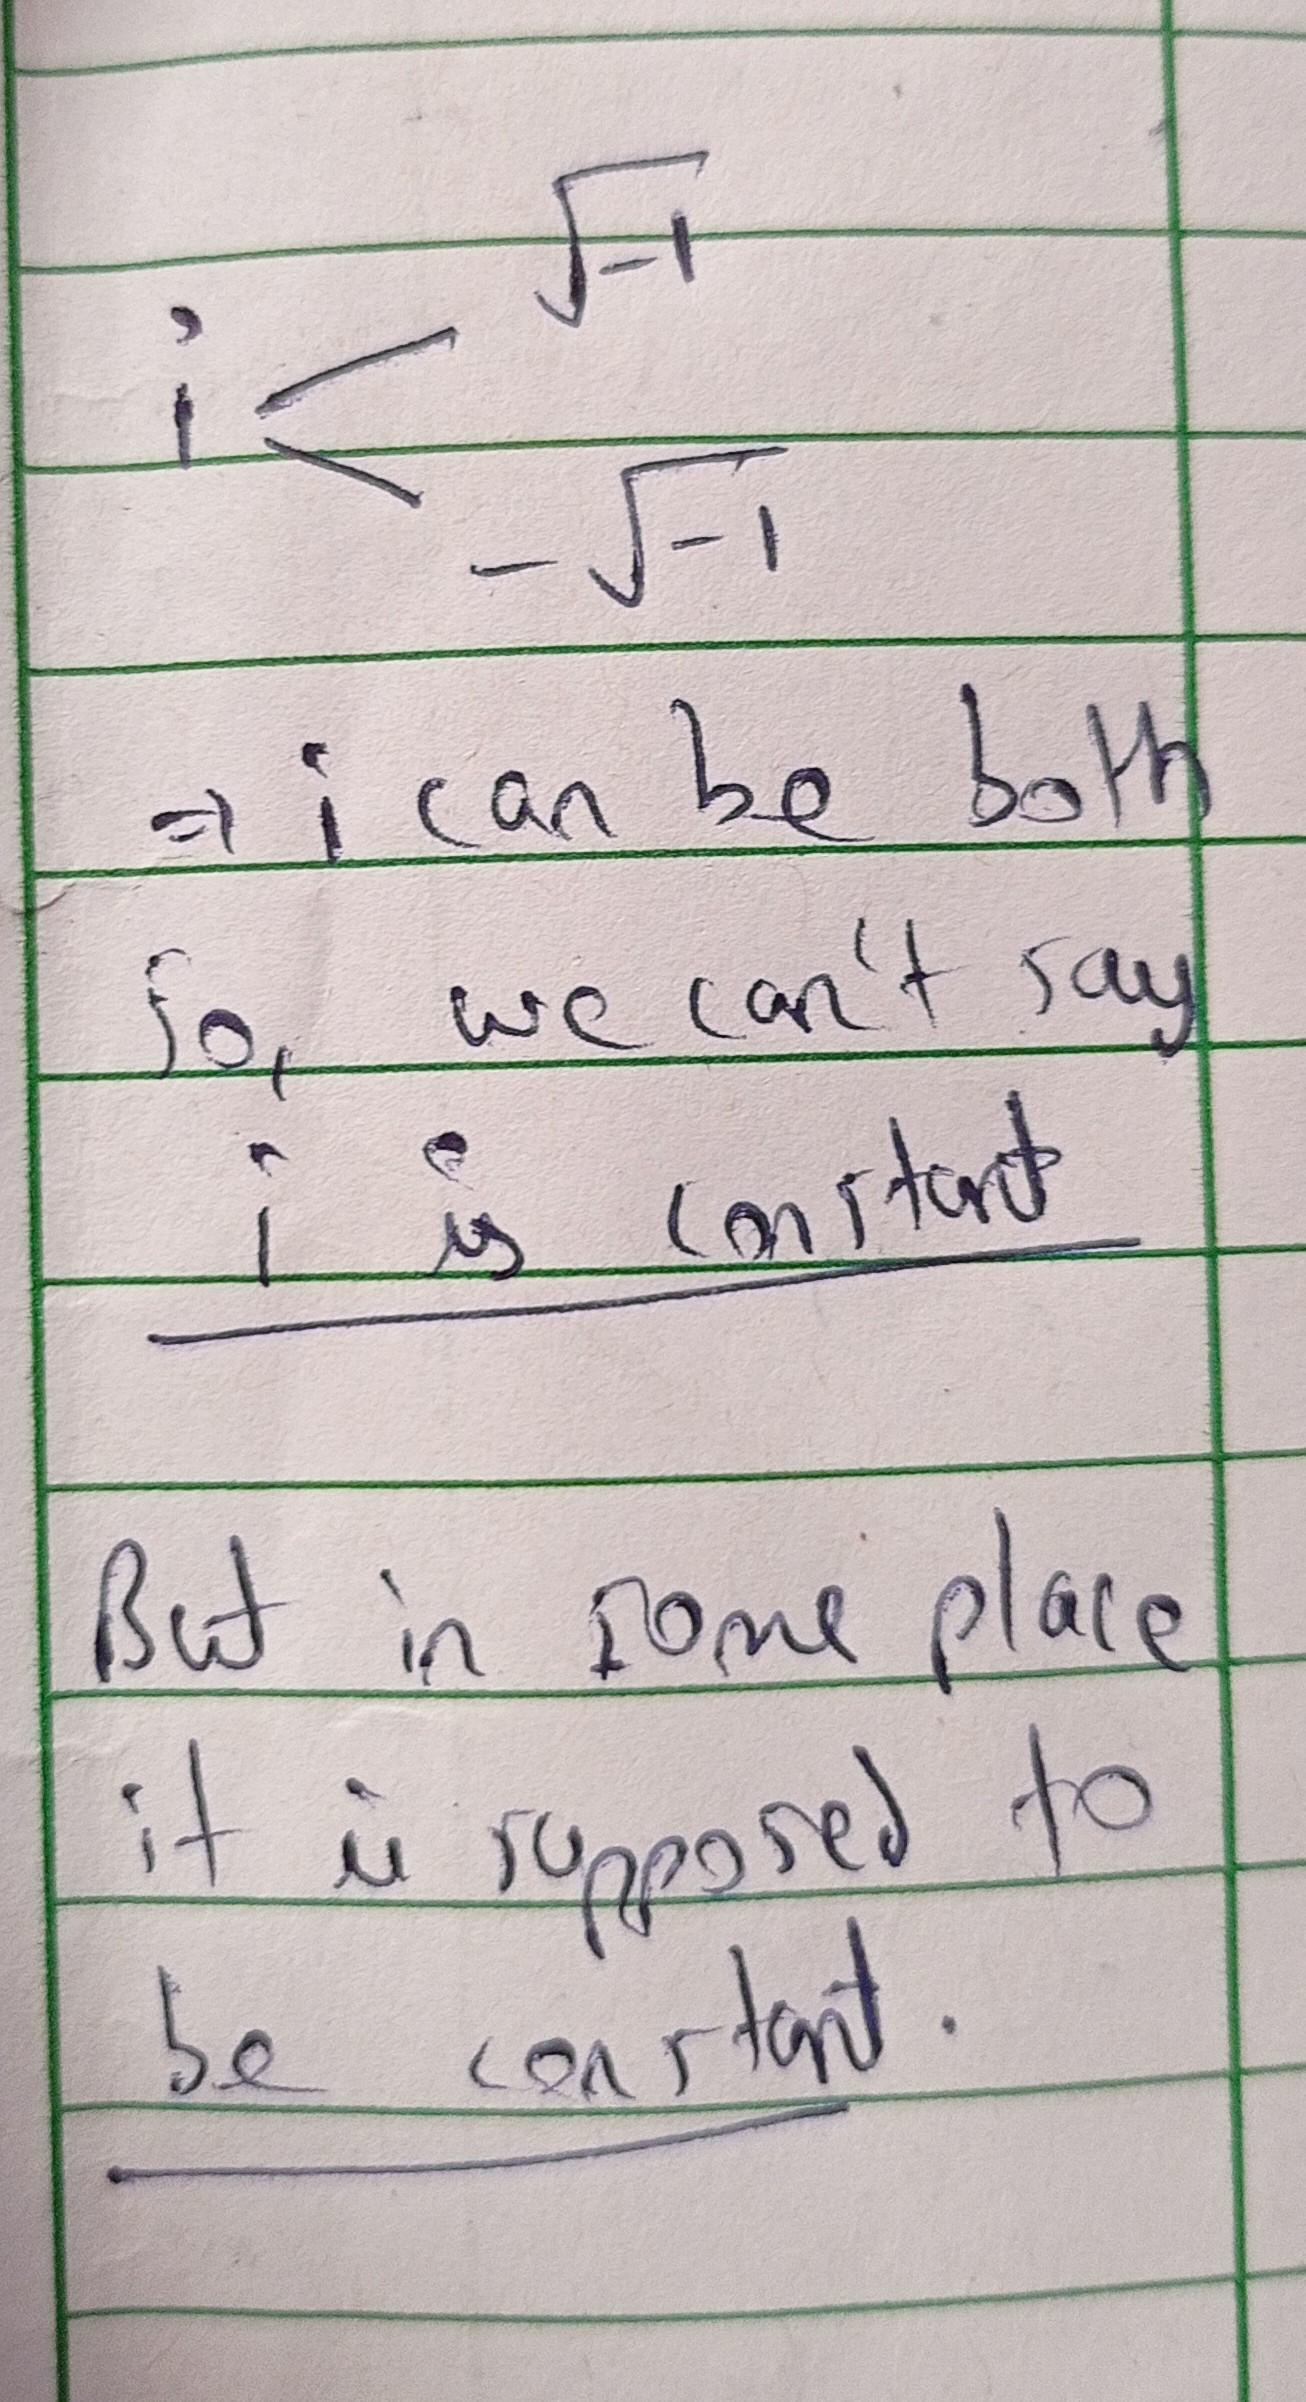 √-1
i <
-√-1
⇒ i can be both
So, we can't say
i is constant
But in some place
it is supposed to
be constant.